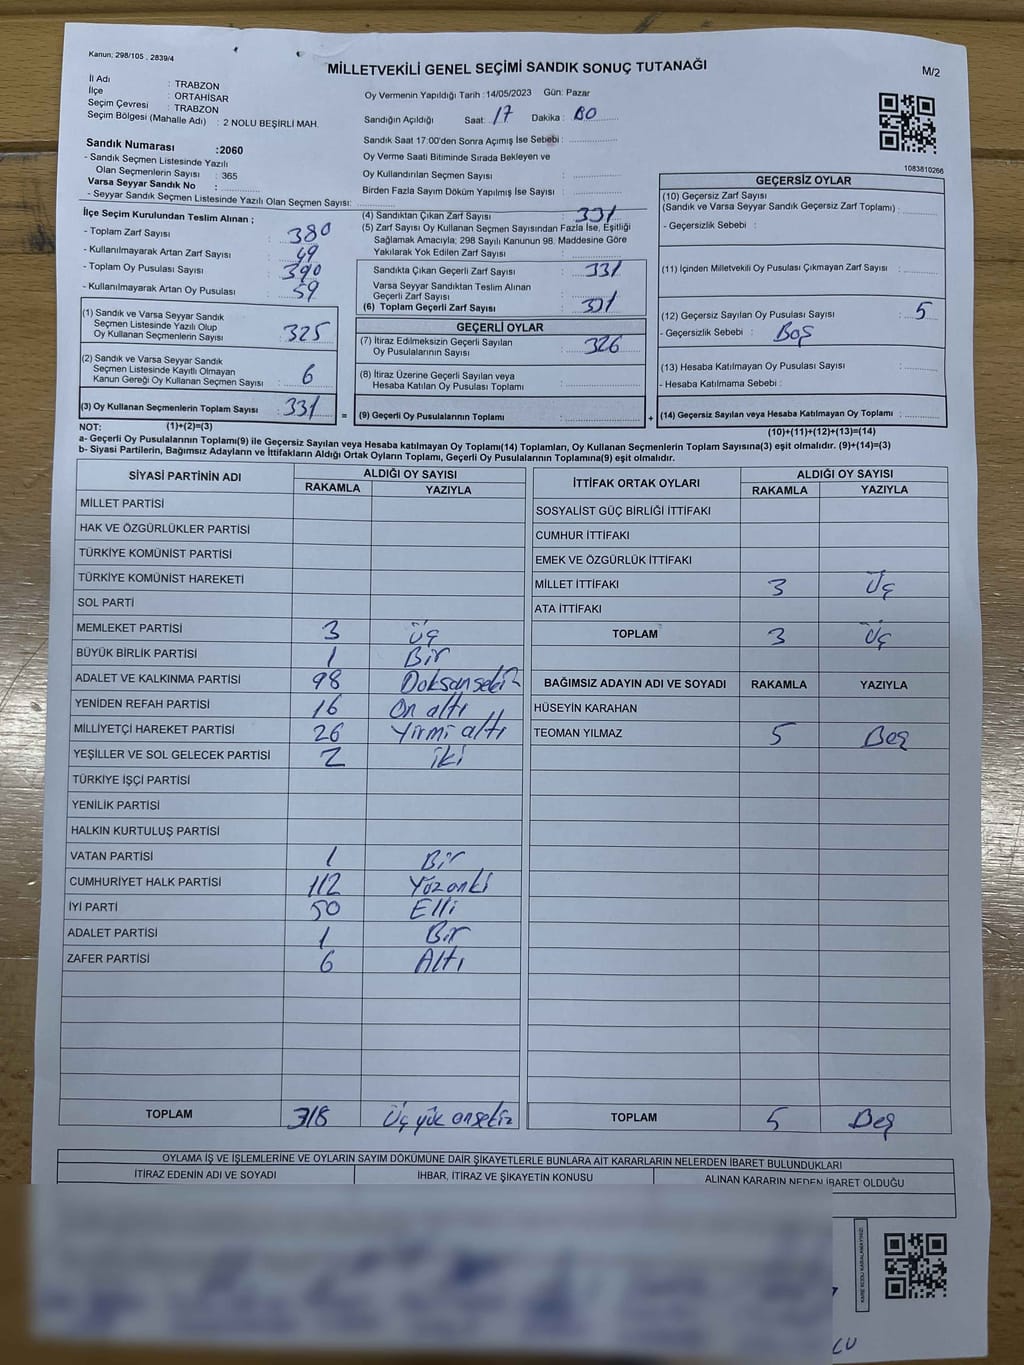 Kanun; 298/105 , 2839/4
MİLLETVEKİLİ GENEL SEÇİMİ SANDIK SONUÇ TUTANAĞI
M/2
İl Adı : TRABZON
İlçe : ORTAHİSAR
Seçim Çevresi : TRABZON
Seçim Bölgesi (Mahalle Adı) : 2 NOLU BEŞİRLİ MAH.
Sandık Numarası :2060
- Sandık Seçmen Listesinde Yazılı
Olan Seçmenlerin Sayısı : 365
Varsa Seyyar Sandık No :
- Seyyar Sandık Seçmen Listesinde Yazılı Olan Seçmen Sayısı:
Oy Vermenin Yapıldığı Tarih :14/05/2023 Gün: Pazar
Sandığın Açıldığı Saat: 17 Dakika:
Sandık Saat 17:00'den Sonra Açımış İse Sebebi :
Oy Verme Saati Bitiminde Sırada Bekleyen ve
Oy Kullandırılan Seçmen Sayısı :
Birden Fazla Sayım Döküm Yapılmış İse Sayısı :
1083810266
İlçe Seçim Kurulundan Teslim Alınan ;
- Toplam Zarf Sayısı : 380
- Kullanılmayarak Artan Zarf Sayısı : 49
- Toplam Oy Pusulası Sayısı : 390
- Kullanılmayarak Artan Oy Pusulası : 59
(1) Sandık ve Varsa Seyyar Sandık
Seçmen Listesinde Yazılı Olup
Oy Kullanan Seçmenlerin Sayısı : 325
(2) Sandık ve Varsa Seyyar Sandık
Seçmen Listesinde Kayıtlı Olmayan
Kanun Gereği Oy Kullanan Seçmen Sayısı : 6
(3) Oy Kullanan Seçmenlerin Toplam Sayısı : 331
(1)+(2)=(3)
(4) Sandıktan Çıkan Zarf Sayısı : 331
(5) Zarf Sayısı Oy Kullanan Seçmen Sayısından Fazla İse, Eşitliği
Sağlamak Amacıyla; 298 Sayılı Kanunun 98. Maddesine Göre
Yakılarak Yok Edilen Zarf Sayısı :
Sandıkta Çıkan Geçerli Zarf Sayısı : 331
Varsa Seyyar Sandıktan Teslim Alınan
Geçerli Zarf Sayısı :
(6) Toplam Geçerli Zarf Sayısı : 331
GEÇERLİ OYLAR
(7) İtiraz Edilmeksizin Geçerli Sayılan
Oy Pusulalarının Sayısı : 326
(8) İtiraz Üzerine Geçerli Sayılan veya
Hesaba Katılan Oy Pusulası Toplamı :
= (9) Geçerli Oy Pusulalarının Toplamı :
GEÇERSİZ OYLAR
(10) Geçersiz Zarf Sayısı
(Sandık ve Varsa Seyyar Sandık Geçersiz Zarf Toplamı) :
- Geçersizlik Sebebi :
(11) İçinden Milletvekili Oy Pusulası Çıkmayan Zarf Sayısı :
(12) Geçersiz Sayılan Oy Pusulası Sayısı : 5
- Geçersizlik Sebebi : Boş
(13) Hesaba Katılmayan Oy Pusulası Sayısı :
- Hesaba Katılmama Sebebi :
+ (14) Geçersiz Sayılan veya Hesaba Katılmayan Oy Toplamı :
(10)+(11)+(12)+(13)=(14)
NOT:
a- Geçerli Oy Pusulalarının Toplamı(9) ile Geçersiz Sayılan veya Hesaba katılmayan Oy Toplamı(14) Toplamları, Oy Kullanan Seçmenlerin Toplam Sayısına(3) eşit olmalıdır. (9)+(14)=(3)
b- Siyasi Partilerin, Bağımsız Adayların ve İttifakların Aldığı Ortak Oyların Toplamı, Geçerli Oy Pusulalarının Toplamına(9) eşit olmalıdır.
SİYASİ PARTİNİN ADI ALDIĞI OY SAYISI
RAKAMLA YAZIYLA
MİLLET PARTİSİ
HAK VE ÖZGÜRLÜKLER PARTİSİ
TÜRKİYE KOMÜNİST PARTİSİ
TÜRKİYE KOMÜNİST HAREKETİ
SOL PARTİ
MEMLEKET PARTİSİ 3 Üç
BÜYÜK BİRLİK PARTİSİ 1 Bir
ADALET VE KALKINMA PARTİSİ 98 Doksansekiz
YENİDEN REFAH PARTİSİ 16 On altı
MİLLİYETÇİ HAREKET PARTİSİ 26 Yirmi altı
YEŞİLLER VE SOL GELECEK PARTİSİ 2 iki
TÜRKİYE İŞÇİ PARTİSİ
YENİLİK PARTİSİ
HALKIN KURTULUŞ PARTİSİ
VATAN PARTİSİ 1 Bir
CUMHURİYET HALK PARTİSİ 112 Yüzonki
İYİ PARTİ 50 Elli
ADALET PARTİSİ 1 Bir
ZAFER PARTİSİ 6 Altı
TOPLAM 318 Üç yüz onsekiz
İTTİFAK ORTAK OYLARI ALDIĞI OY SAYISI
RAKAMLA YAZIYLA
SOSYALİST GÜÇ BİRLİĞİ İTTİFAKI
CUMHUR İTTİFAKI
EMEK VE ÖZGÜRLÜK İTTİFAKI
MİLLET İTTİFAKI 3 Üç
ATA İTTİFAKI
TOPLAM 3 Üç
BAĞIMSIZ ADAYIN ADI VE SOYADI RAKAMLA YAZIYLA
HÜSEYİN KARAHAN
TEOMAN YILMAZ 5 Beş
TOPLAM 5 Beş
OYLAMA İŞ VE İŞLEMLERİNE VE OYLARIN SAYIM DÖKÜMÜNE DAİR ŞİKAYETLERLE BUNLARA AİT KARARLARIN NELERDEN İBARET BULUNDUKLARI
İTİRAZ EDENİN ADI VE SOYADI İHBAR, İTİRAZ VE ŞİKAYETİN KONUSU ALINAN KARARIN NEDEN İBARET OLDUĞU
KARE KODU KARALAMAYINIZ!